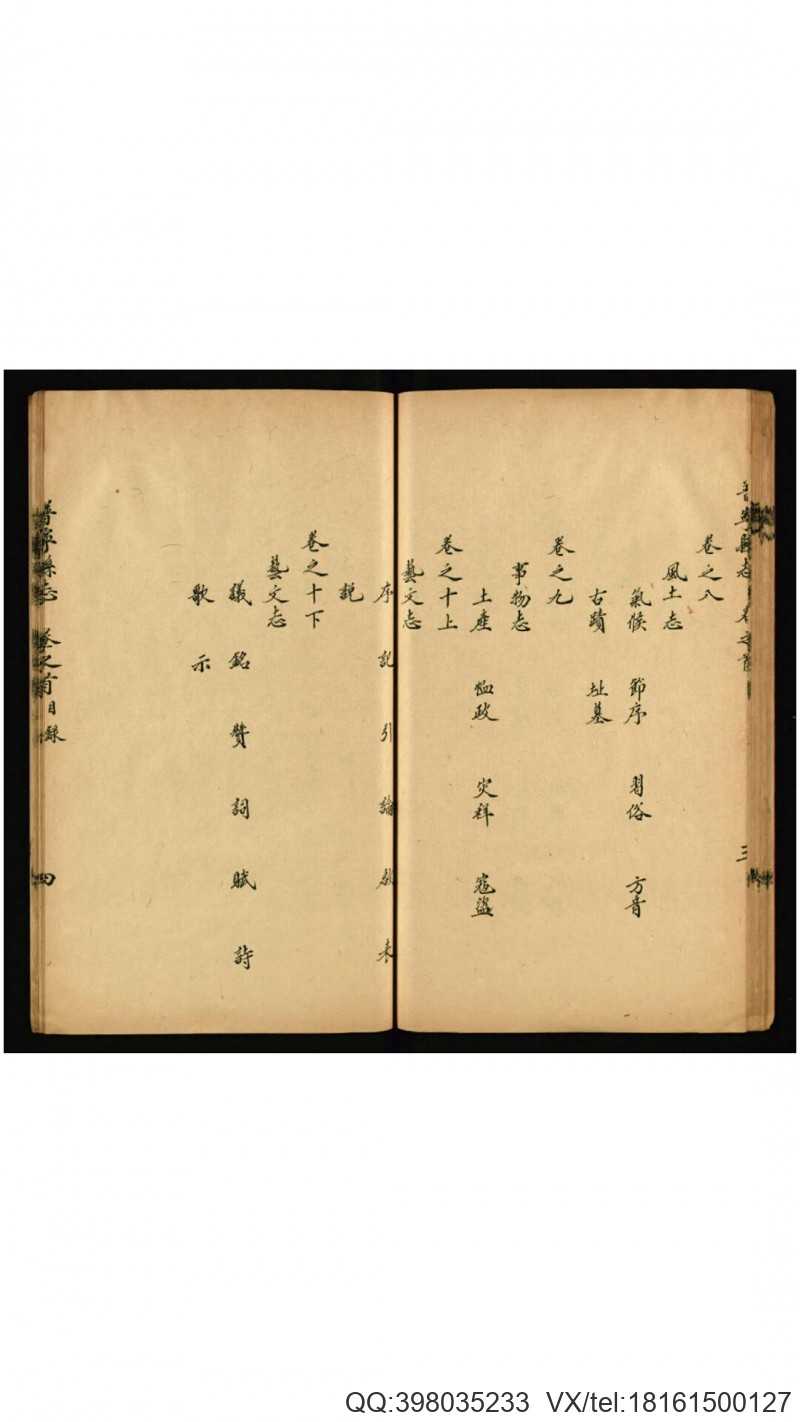 普寧縣志 卷之首 三
卷之八
風土志
氣候 節序 習俗 方音
古蹟 址墓
卷之九
事物志
土産 恤政 災祥 寇盜
卷之十上
藝文志
序 記 引 論
説
卷之十下
藝文志
議 銘 贊 詞 賦 詩
歌 示
普寧縣志 卷之首 目錄 四
QQ:398035233 VX/tel:18161500127